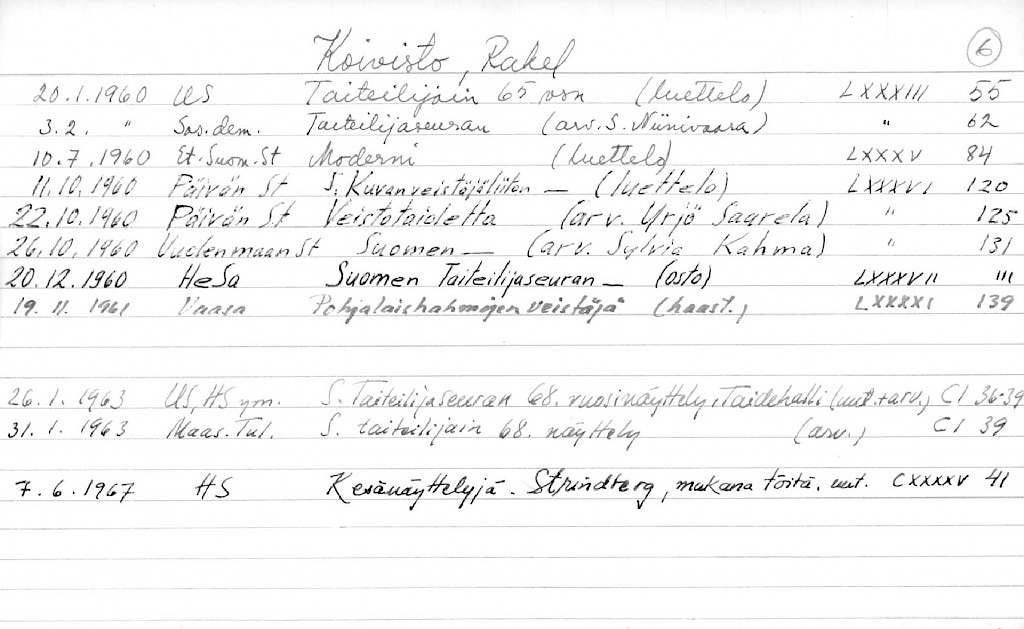 Koivisto, Rakel 6
20.1.1960 US Taiteilijain 65 vsn (luettelo) LXXXIII 55
3.2. " Sos.dem. Taiteilijaseuran (arv. S. Niinivaara) " 62
10.7.1960 Et.Suom.St Moderni (luettelo) LXXXV 84
11.10.1960 Päivän St S. Kuvanveistäjäliiton — (luettelo) LXXXVI 120
22.10.1960 Päivän St Veistotaidetta (arv. Yrjö Saarela) " 125
26.10.1960 UudenmaanSt Suomen — (arv. Sylvia Kahma) " 131
20.12.1960 HeSa Suomen Taiteilijaseuran — (osto) LXXXVII 111
19.11.1961 Vaasa Pohjalaishahmojen veistäjä (haast.) LXXXXI 139
26.1.1963 US, HS ym. S. Taiteilijaseuran 68. vuosinäyttely, Taidehalli (uut.+arv.) CI 36-39
31.1.1963 Maas.Tul. S. taiteilijain 68. näyttely (arv.) CI 39
7.6.1967 HS Kesänäyttelyjä. Strindberg, mukana töitä. uut. CXXXXV 41